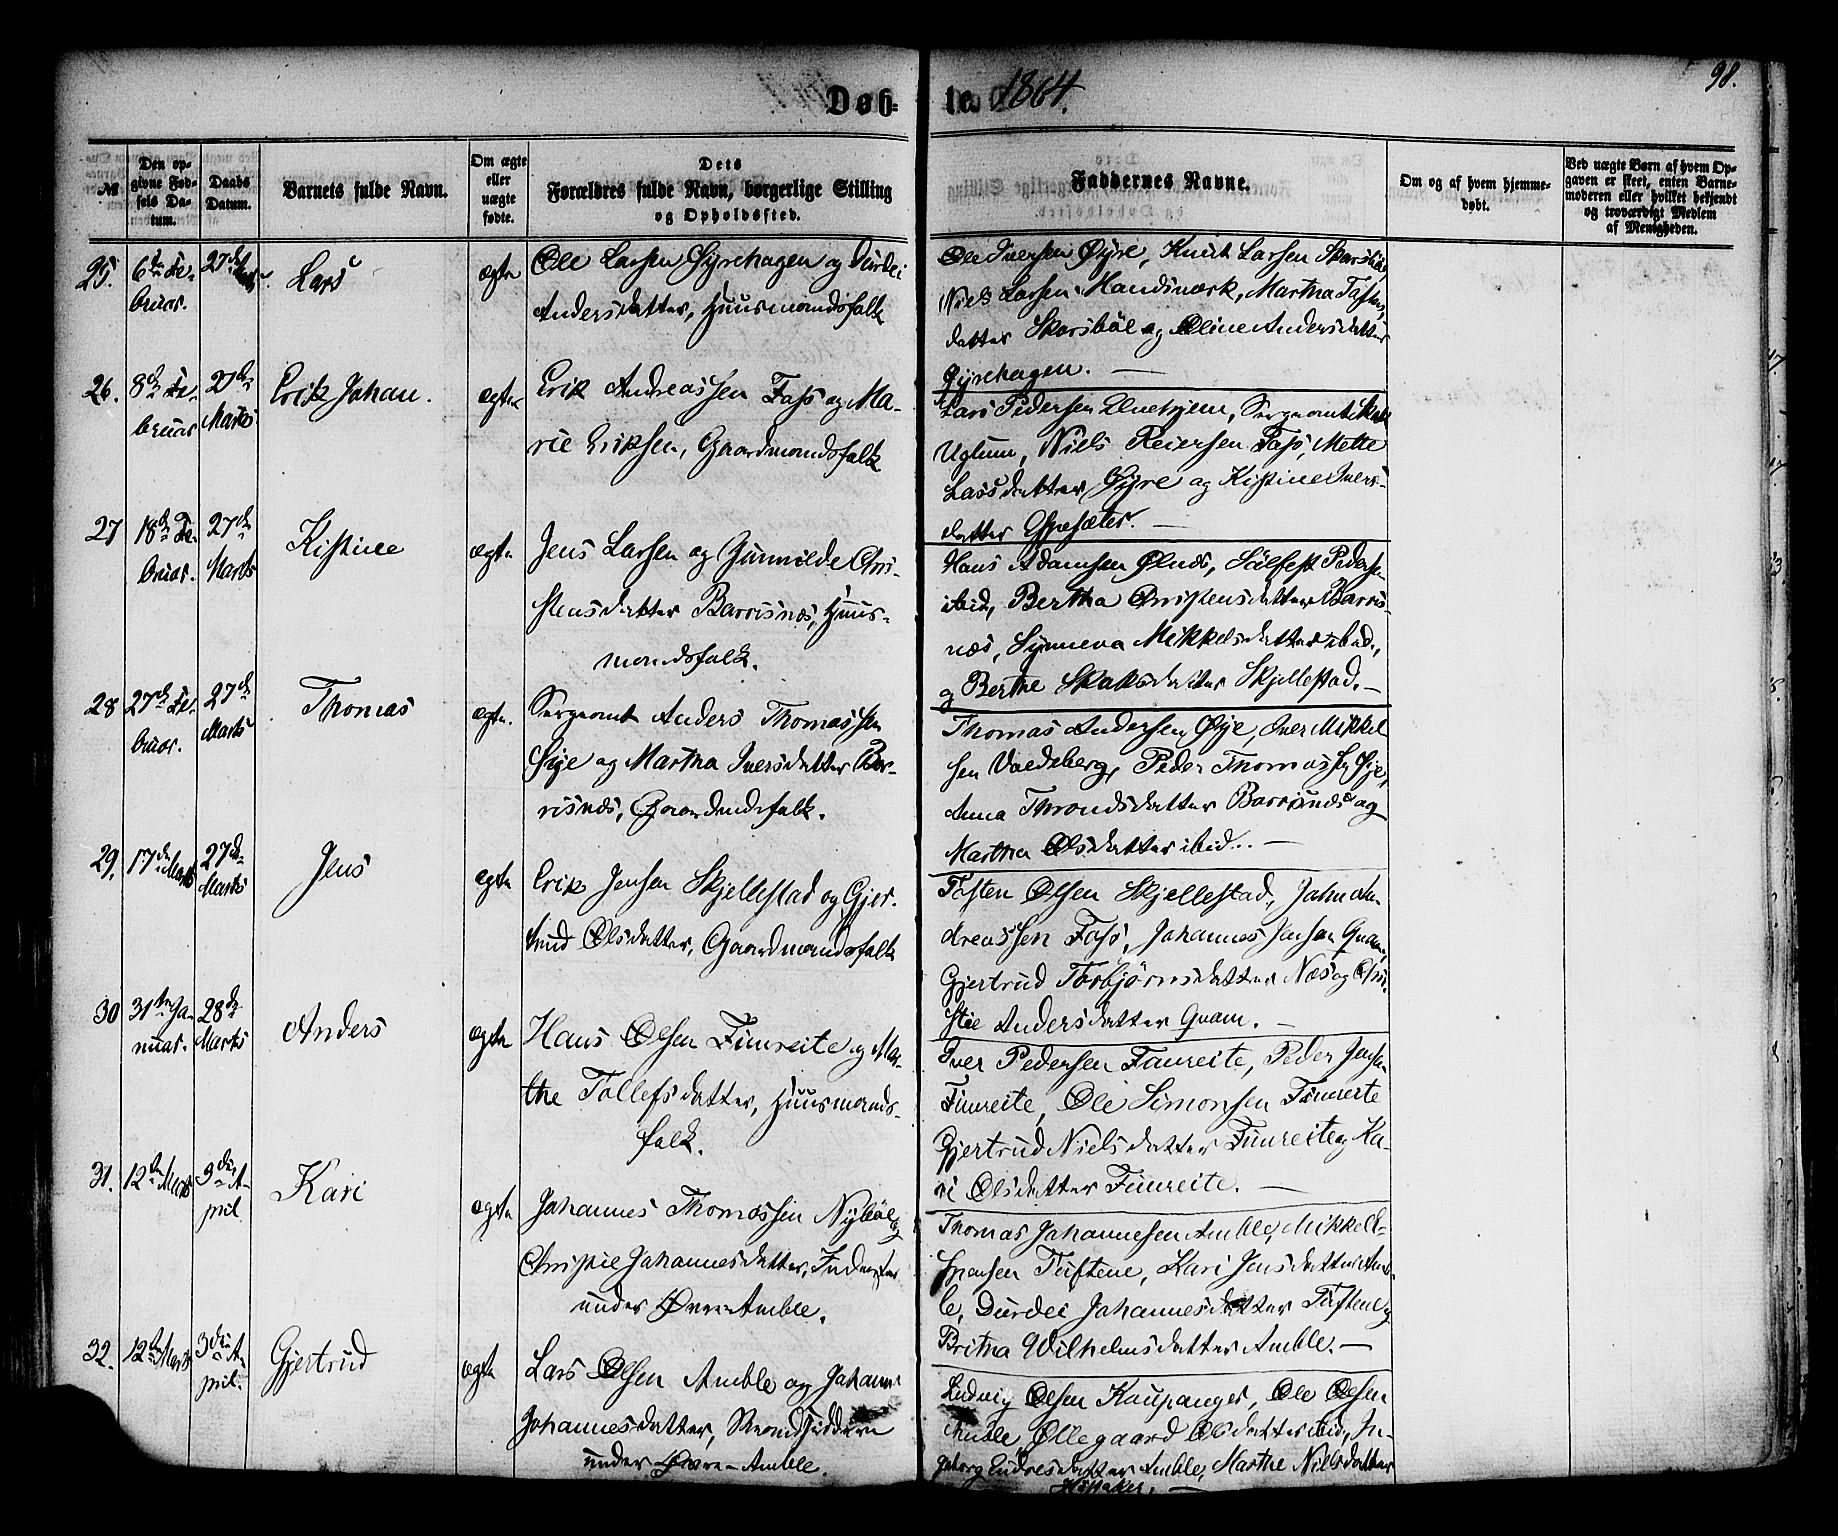 98.
Døb- te. 1864.
№
Den opgivne Fødsels Datum.
Daabs Datum.
Barnets fulde Navn.
Om ægte eller uægte fødte.
Dets Forældres fulde Navn, borgerlige Stilling og Opholdssted.
Faddernes Navne.
Om og af hvem hjemmedøbt.
Ved uægte Børn af hvem Opgaven er skeet, enten Barnemoderen eller hvilket bekjendt og troværdigt Medlem af Menigheden.
25. 6te Fe- 27de Marts Lars ægte Ole Larsen Øyrehagen og Durdei
bruar. Andersdatter, Huusmandsfolk
Ole Iversen Øyre, Knut Larsen Skarsböl
Niels Larsen Handsværk, Martha Tosten-
datter Skarsböl og Oline Andersdatter
Øyrehagen. —
26. 8de Fe- 27de Erik Johan. ægte Erik Andreassen Foss og Ma-
bruar Marts rie Eriksen, Gaardmandsfolk
Lars Pedersen, Sergeant
Uglum, Niels Reiersen Foss, Mette
Larsdatter Øyre og Kistine Ivers-
datter Espesæter. —
27 18de Fe- 27de Kistine ægte Jens Larsen og Gunnilde Chri-
bruar. Marts stensdatter Barrisnæs, Huus-
mandsfolk.
Hans Adamsen Ølnæs, Sülfest Peders-
ibid, Bertha Christensdatter Barris-
næs, Synneva Mikkelsdatter ibid.,
og Berthe datter Skjellestad. —
28 27de Fe- 27de Thomas ægte. Sergeant Anders Thomassen
bruar. Marts Øye og Martha Iversdatter Bar-
risnæs, Gaardmandsfolk.
Thomas Andersen Øye, Iver Mikkel
sen Voldeberg, Peder Thomassen Øye,
Anna Throndsdatter Barrisnæs og
Martha Olsdatter ibid. —
29. 17de Marts 27de Marts Jens ægte Erik Jensen Skjellestad og Gjer-
trud Olsdatter, Gaardmandsfolk
Tosten Olsen Skjellestad, John An-
dreassen Foss, Johannes Jensen Qvam,
Gjertrud Thorbjørnsdatter Næs og Chri-
stie Andersdatter Qvam. —
30 31te Ja- 28de Anders ægte Hans Olsen Fimreite og Mar-
nuar. Marts the Tollefsdatter, Huusmands-
folk.
Iver Pedersen Fimreite, Peder Jensen
Fimreite, Ole Simonsen Fimreite
Gjertrud Nielsdatter Fimreite og Ka-
ri Olsdatter Fimreite. —
31. 12te Marts 3die A- Kari ægte Johannes Thomassen Nybøle og
pril Christie Johannesdatter, Inderster
under Øvre Amble.
Thomas Johannesen Amble, Mikkel
Espensen Tuftene, Kari Jensdatter Am-
le, Durdei Johannesdatter Tuftene og
Britha Wilhelmsdatter Amble. —
32. 12te Marts 3die A- Gjertrud ægte Lars Olsen Amble og Johanne
pril. Johannesdatter, Strandsiddere
under Øvre-Amble.
Ludvig Olsen Kaupanger, Ole Olsen
Amble, Øllegaard Olsdatter ibid, In-
geborg Endresdatter Amble, Marthe Nielsdatter